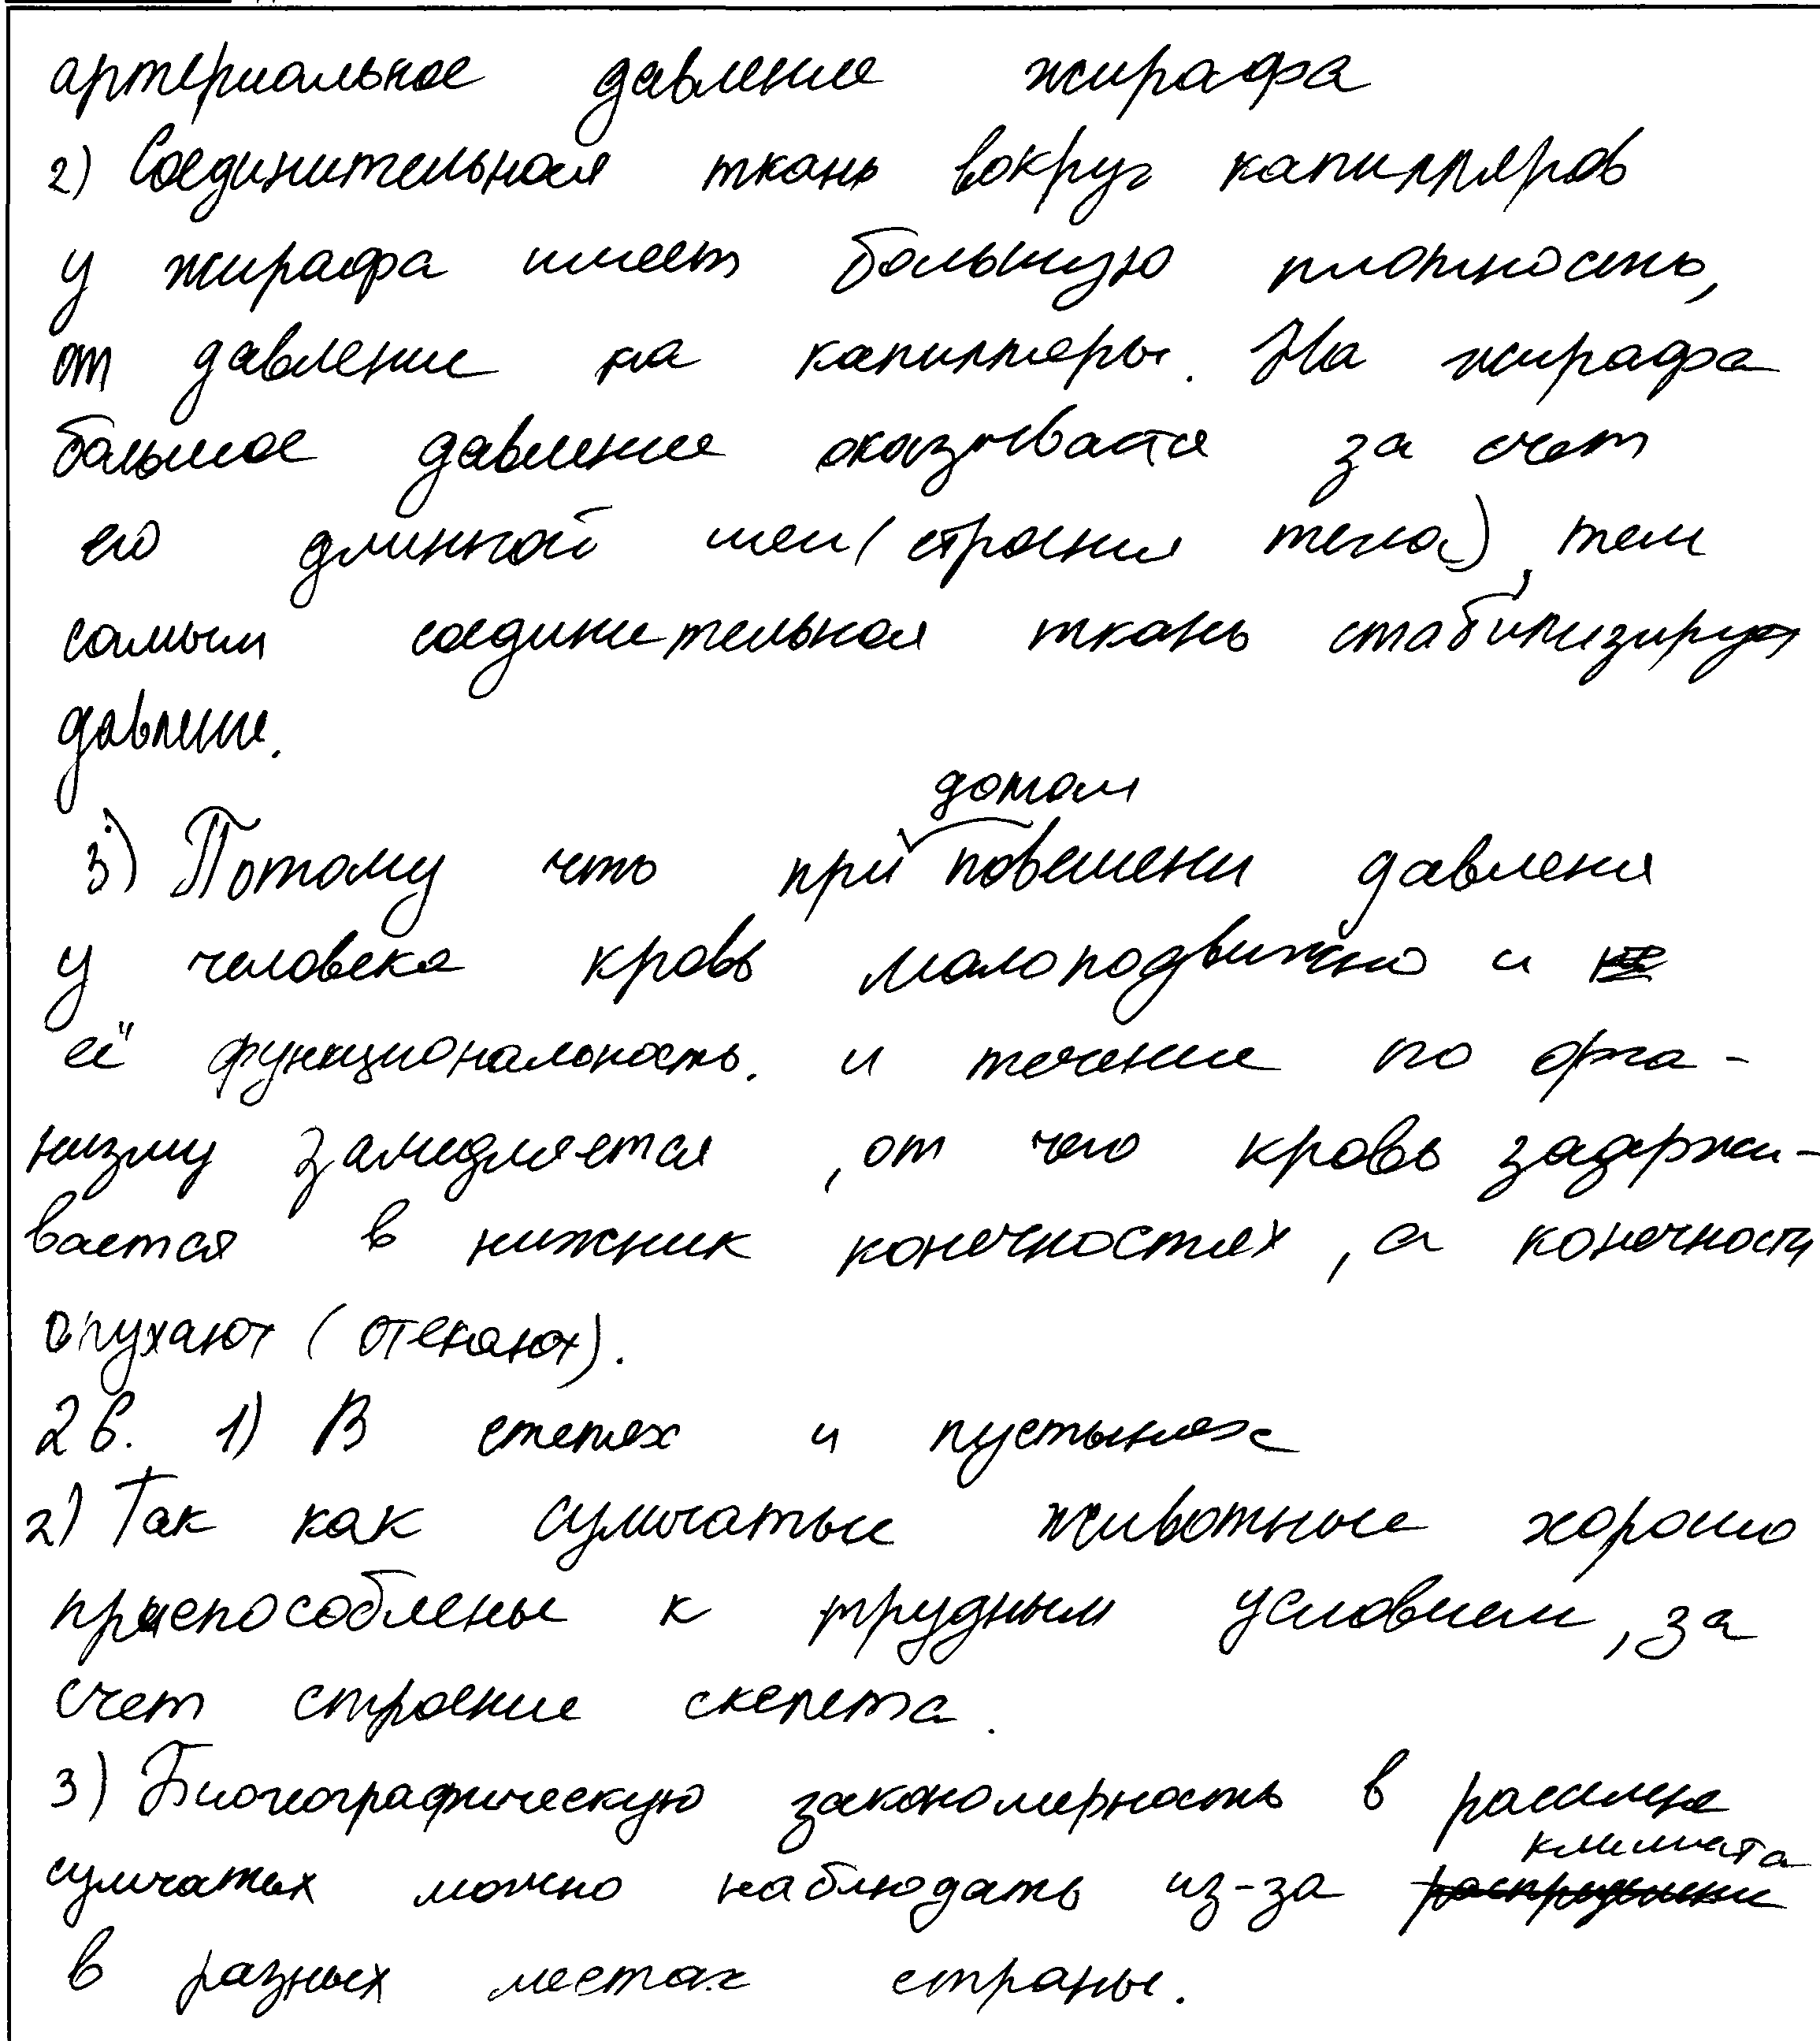 артериальное давление жирафа
2) Соединительная ткань вокруг капилляров
у жирафа имеет большую плотность,
от давление на капилляры. На жирафа
большое давление оказывается за счет
его длинной шеи (строения тела), тем
самым соединительная ткань стабилизирует
давление.
датом
3) Потому что при повешени давления
у человека кровь малоподвижно и
её функциональность. и течение по орга-
низму замедляется, от чего кровь задержи-
вается в нижник конечностях, а конечности
опухают (отекают).
26. 1) В степях и пустынях
2) Так как сумчатые животные хорошо
приспособлены к трудным условием, за
счет строение скелета.
3) Биогеографическую закономерность в расселене
климата
сумчатых можно наблюдать из-за
в разных местах страны.